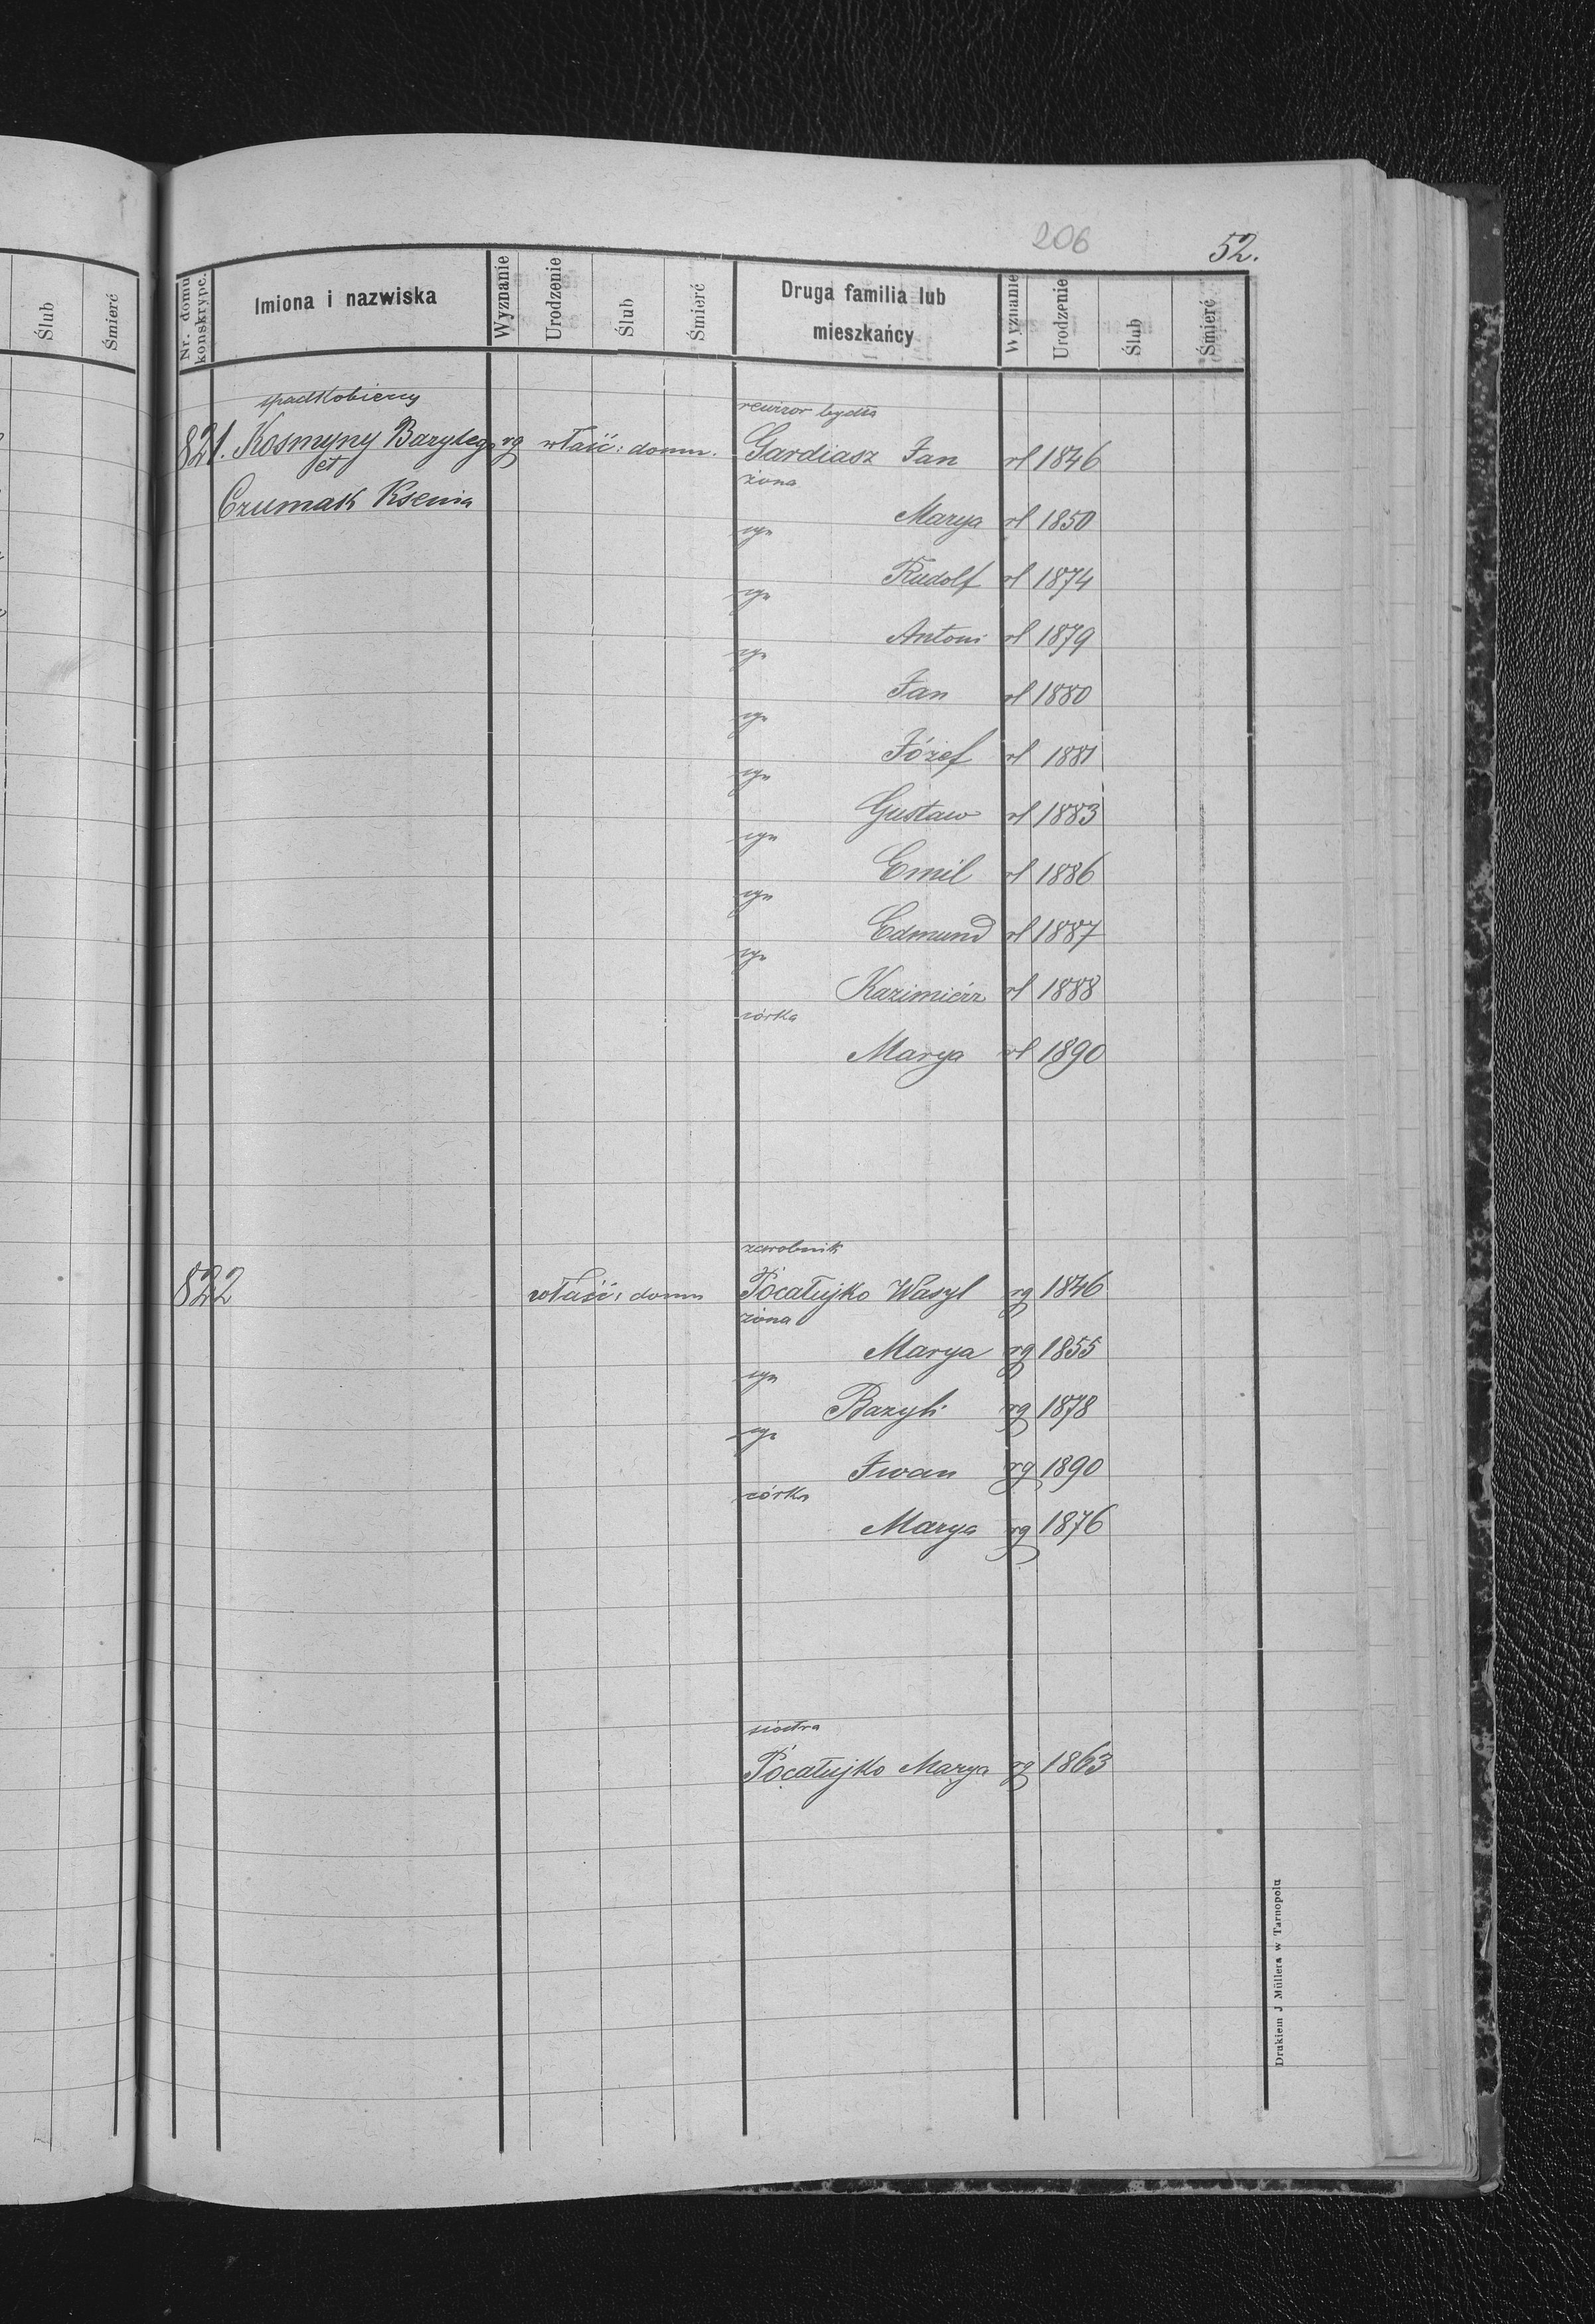 206
52.
Ślub Śmierć
Nr. domu konskrypc. Imiona i nazwiska Wyznanie Urodzenie Ślub Śmierć Druga familia lub mieszkańcy Wyznanie Urodzenie Ślub Śmierć
spadkobiercy rewizor bydła
821. Kosmyny Bazylego rg właść: domu. Gardiasz Jan rł 1846
et żona
Czumak Ksenia Marya rł 1850
syn
Rudolf rł 1874
syn
Antoni rł 1879
syn
Jan rł 1880
syn
Józef rł 1881
syn
Gustaw rł 1883
syn
Emil rł 1886
syn
Edmund rł 1887
syn
Kazimierz rł 1888
córka
Marya rł 1890
zarobnik
822 właść: domu Pocałujko Wasyl rg 1846
żona
Marya rg 1855
syn
Bazyli rg 1878
syn
Iwan rg 1890
córka
Marya rg 1876
siostra
Pocałujko Marya rg 1863
Drukiem J Müllera w Tarnopolu